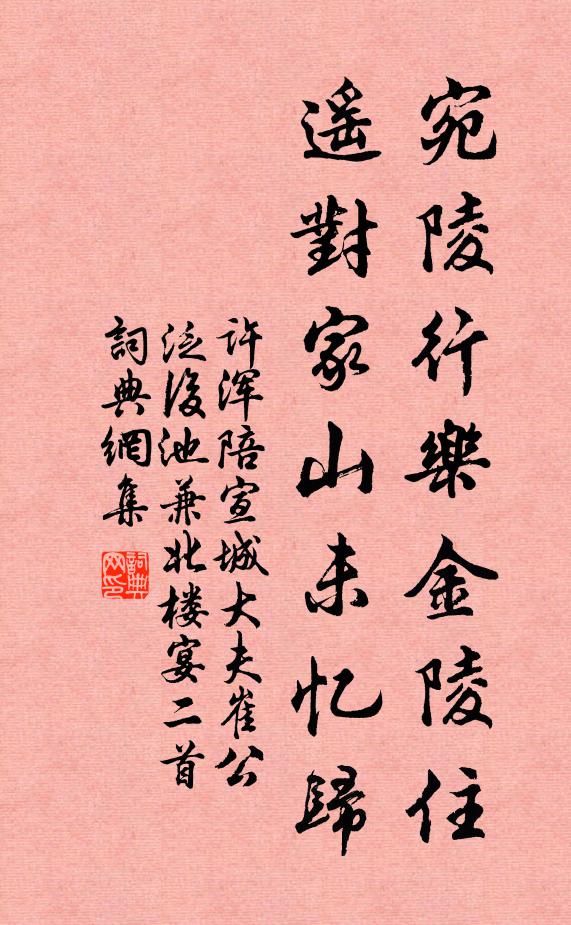 宛陵行樂金陵住
遥對家山未忆歸
许浑陪宣城大夫崔公
泛後池兼北楼宴二首
詞典網集
詞典網印